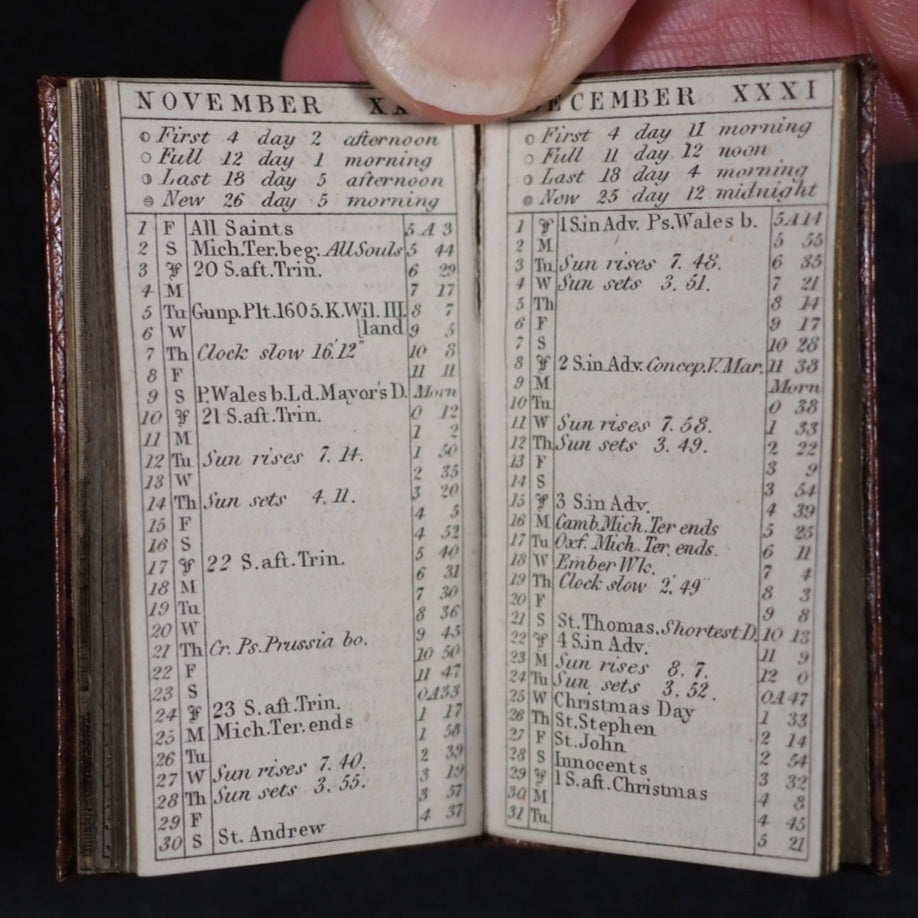 NOVEMBER XX
First 4 day 2 afternoon
Full 12 day 1 morning
Last 18 day 5 afternoon
New 26 day 5 morning
1 F All Saints 5 A 3
2 S Mich.Ter.beg: All Souls 5 44
3 F 20 S.aft.Trin. 6 29
4 M 7 17
5 Tu Gunp.Plt.1605.K.Wil.III. 8 7
6 W [land 9 5
7 Th Clock slow 16.'12" 10 8
8 F 11 11
9 S P.Wales b.Ld.Mayor's D. Morn
10 F 21 S.aft.Trin. 0 12
11 M 1 2
12 Tu Sun rises 7.14. 1 50
13 W 2 35
14 Th Sun sets 4.11. 3 20
15 F 4 5
16 S 4 52
17 F 22 S.aft.Trin. 5 40
18 M 6 31
19 Tu 7 30
20 W 8 36
21 Th Cr. Ps.Prussia bo. 9 45
22 F 10 50
23 S 11 47
24 F 23 S.aft.Trin. 0A33
25 M Mich.Ter.ends 1 17
26 Tu 1 58
27 W Sun rises 7.40. 2 39
28 Th Sun sets 3.55. 3 19
29 F 3 57
30 S St. Andrew 4 37
DECEMBER XXXI
First 4 day 11 morning
Full 11 day 12 noon
Last 18 day 4 morning
New 25 day 12 midnight
1 F 1 S.in Adv. Ps.Wales b. 5A14
2 M 5 55
3 Tu Sun rises 7.48. 6 35
4 W Sun sets 3.51. 7 21
5 Th 8 14
6 F 9 17
7 S 10 28
8 F 2 S.in Adv. Concep.V.Mar. 11 38
9 M Morn
10 Tu 0 38
11 W Sun rises 7.58. 1 33
12 Th Sun sets 3.49. 2 22
13 F 3 9
14 S 3 54
15 F 3 S.in Adv. 4 39
16 M Camb.Mich.Ter ends 5 25
17 Tu Oxf. Mich. Ter. ends. 6 11
18 W Ember Wk. 7 4
19 Th Clock slow 2.'49" 8 3
20 F 9 8
21 S St.Thomas. Shortest D. 10 13
22 F 4 S.in Adv. 11 9
23 M Sun rises 8.7. 12 0
24 Tu Sun sets 3.52. 0A47
25 W Christmas Day 1 33
26 Th St.Stephen 2 14
27 F St.John 2 54
28 S Innocents 3 32
29 F 1 S.aft.Christmas 4 8
30 M 4 45
31 Tu 5 21